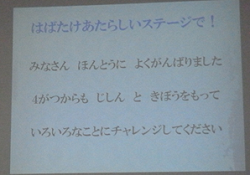 はばたけあたらしいステージで！
みなさん　ほんとうに　よくがんばりました
4がつからも　じしん　と　きぼうをもって
いろいろなことにチャレンジしてください